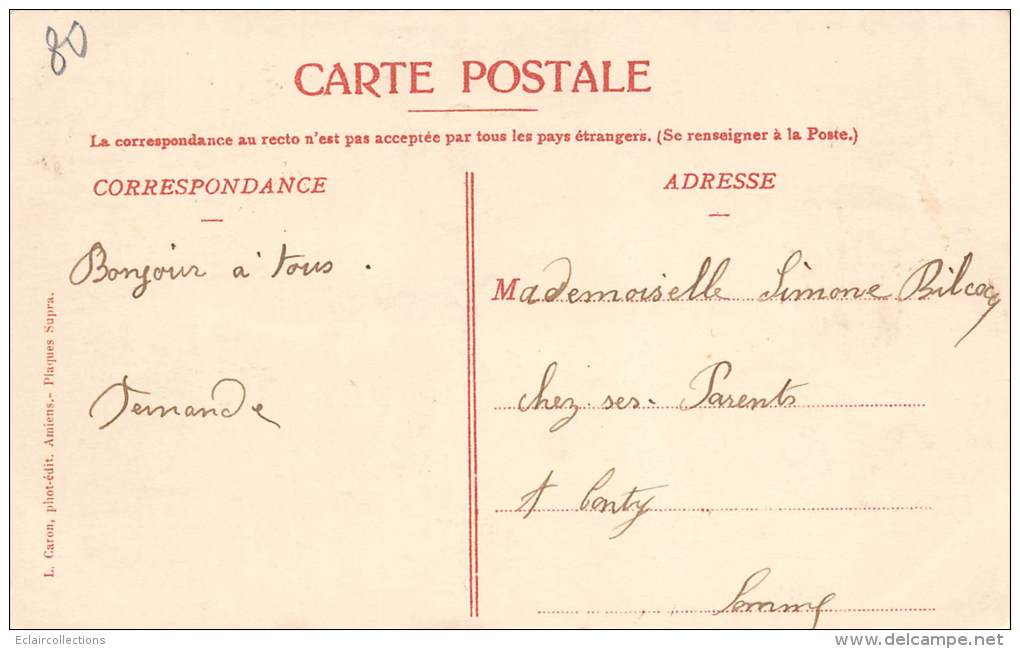 80
CARTE POSTALE
La correspondance au recto n'est pas acceptée par tous les pays étrangers. (Se renseigner à la Poste.)
CORRESPONDANCE
Bonjour à tous.
Fernande
ADRESSE
Mademoiselle Simone Bilcocq
chez ses Parents
A Conty
Somme
L. Caron, phot-édit. Amiens.- Plaques Supra.
Eclaircollections
www.delcampe.net